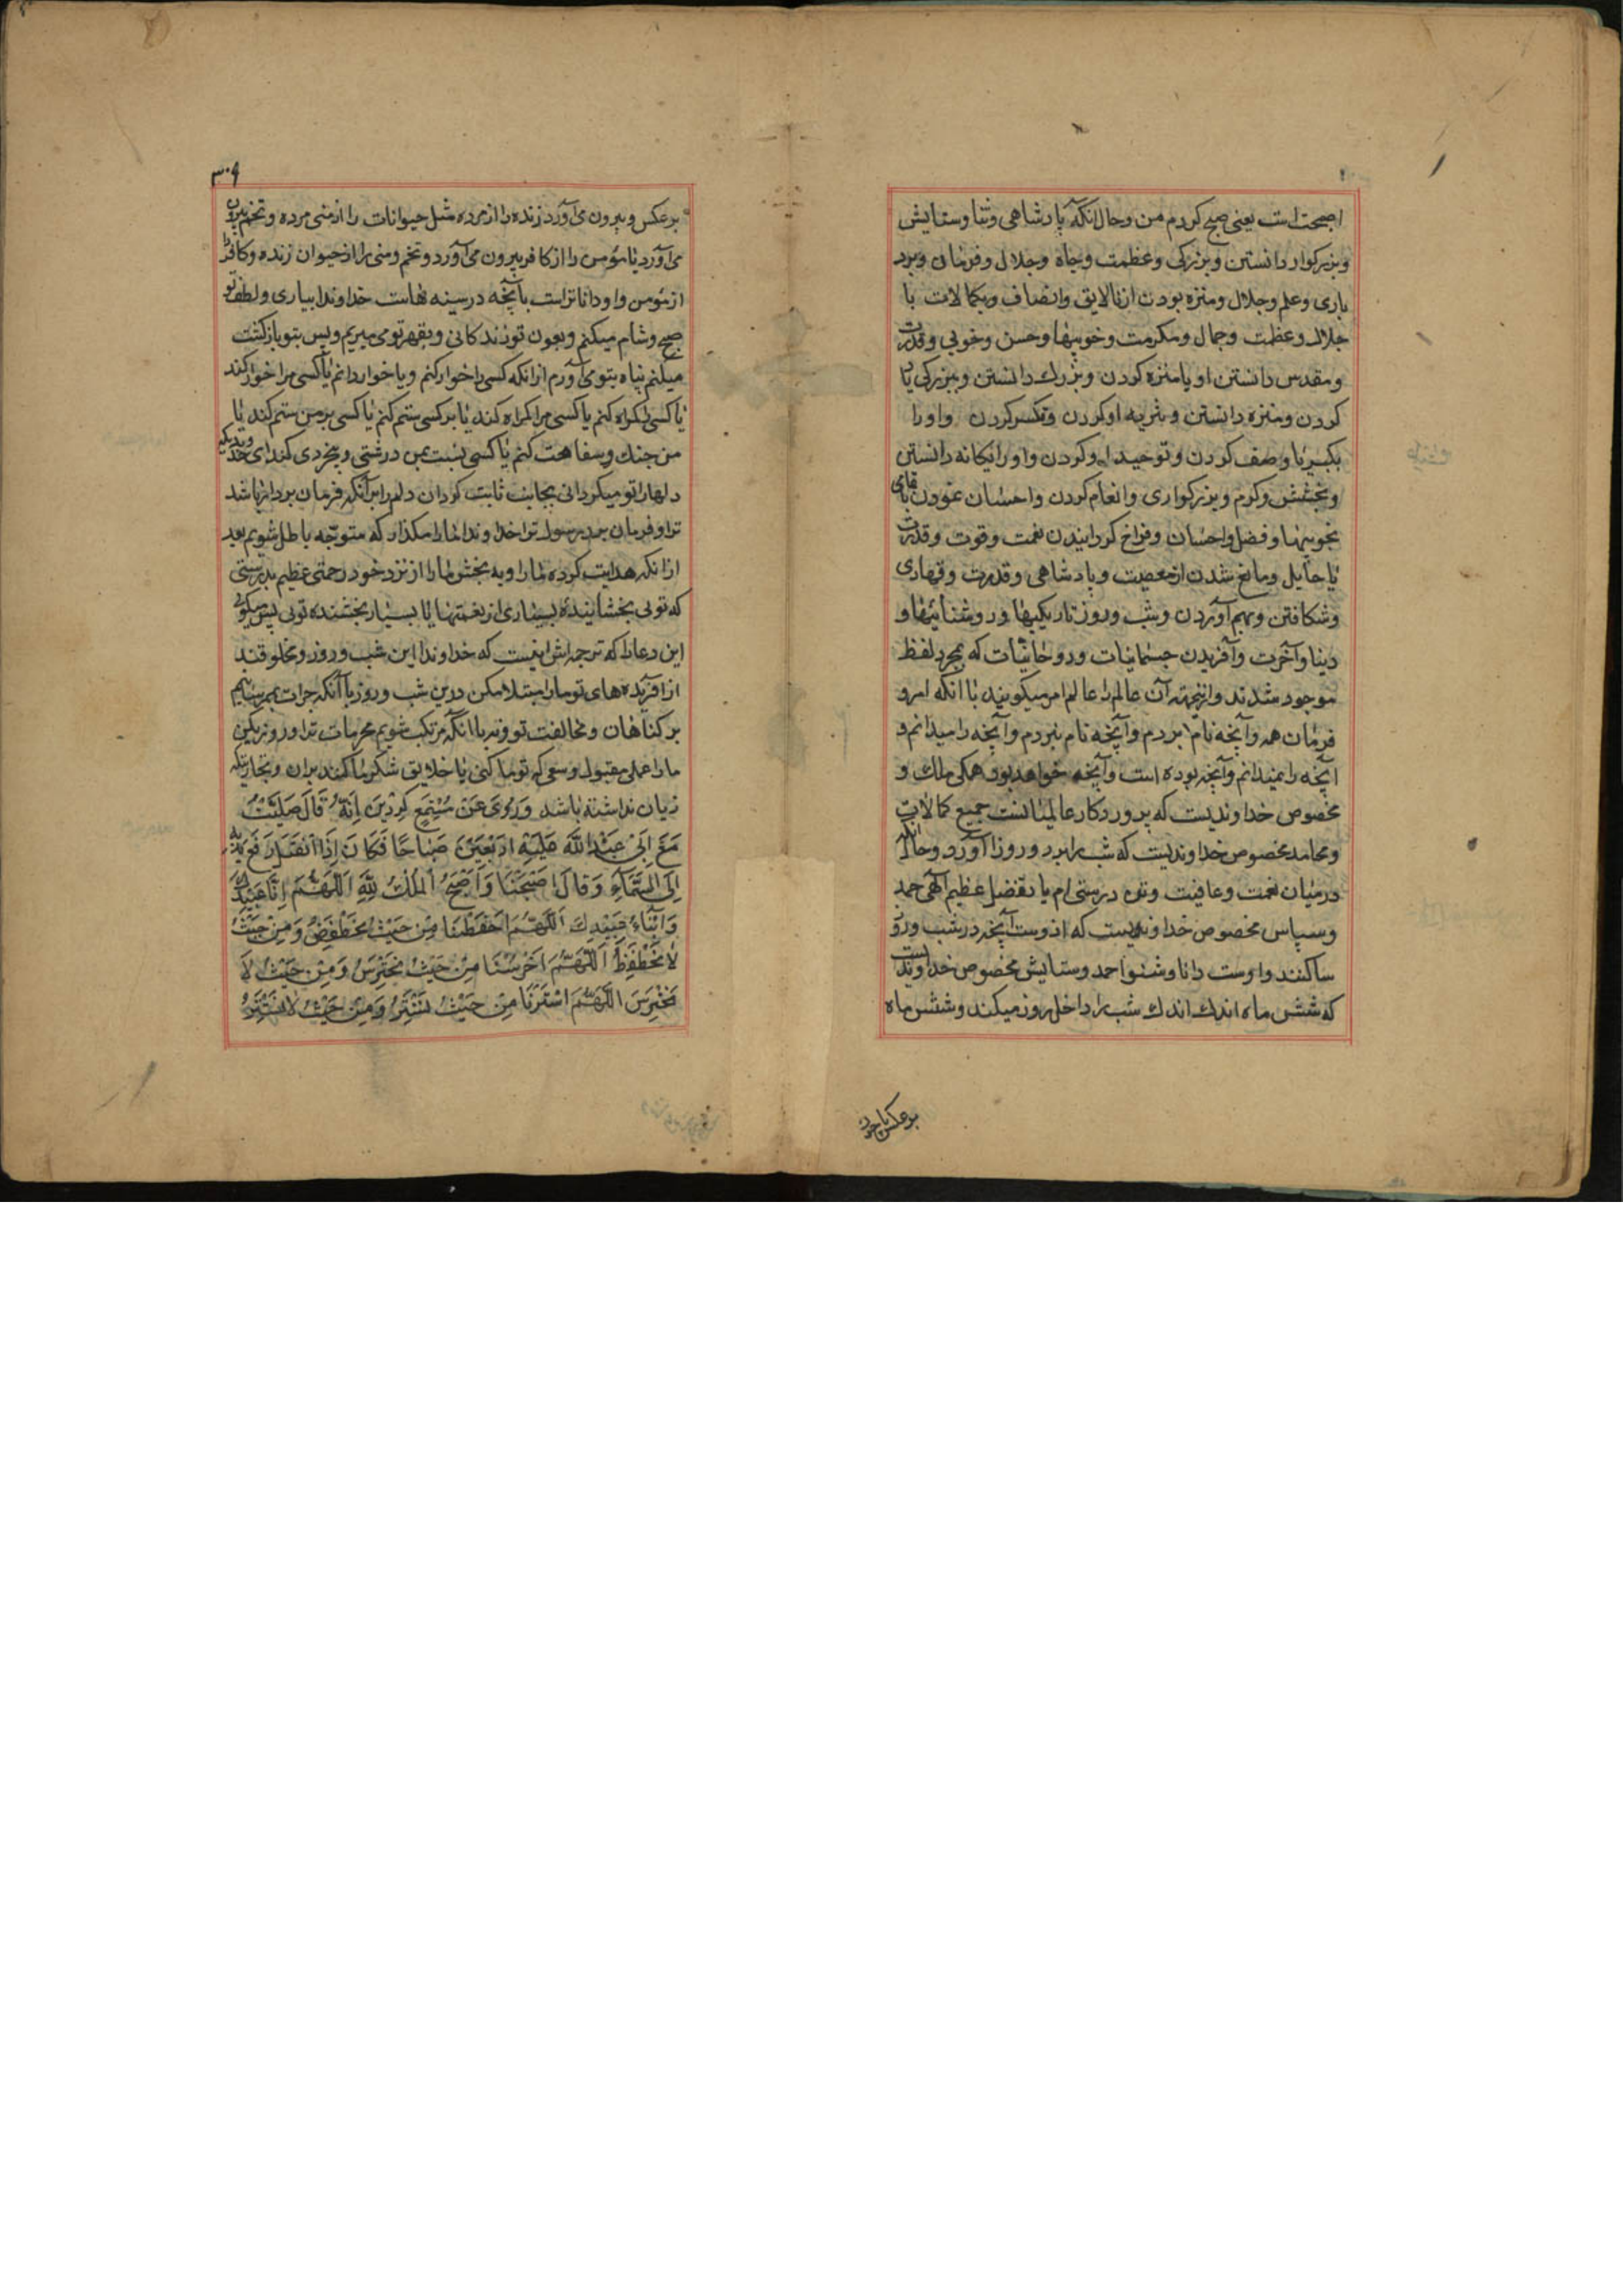 اصبحت است یعنی صبح کردم من و حال آنکه پادشاهی و ثنا و ستایش
و بزرکوار دانستن و بزرکی و عظمت و جاه و جلال و فرمان و برد
باری و علم و جلال و منزه بودن از نالایق و اتصاف و بکمالات با
جلال و عظمت و جمال و مکرمت و خوبیها و حسن و خوبی و قدرت
و مقدس دانستن او یا منزه کردن و بزرك دانستن و ببزرکی یاد
کردن و منزه دانستن و تنزیه او کردن و تکبیر کردن و او را
بکبریا وصف کردن و توحید او کردن و او را یکانه دانستن
و بخشش و کرم و بزرکواری و انعام کردن و احسان نمودن با تمامی
بخوبیها و فضل و احسان و فراخ کردانیدن نعمت و قوت و قدرت
یا حایل و مانع شدن از معصیت و پادشاهی و قدرت و قهاری
و شکافتن و بهم آوردن و شب و روز تاریکیها و روشنائیها و
دنیا و آخرت و آفریدن جسمانیات و روحانیات که بمجرد لفظ
موجود شدند و ازینجهة آن عالم را عالم امر میکویند با آنکه امر و
فرمان همه و آنچه نام بردم و آنچه نام نبردم و آنچه را میدانم و
آنچه را نمیدانم و آنچه بوده است و آنچه خواهد بود همکی ملك و
مخصوص خداوندیست که پروردکار عالمیانست جمیع کمالات
و محامد مخصوص خداوندیست که شب را برد و روز را آورد و حال آنکه
در میان نعمت و عافیت و تن درستی ام یا بفضل عظیم آلهی حمد
و سپاس مخصوص خداوندیست که از وست آنچه در شب و روز
ساکنند و اوست دانا و شنوا حمد و ستایش مخصوص خداوندیست
که شش ماه اندك اندك شب را داخل روز میکند و شش ماه
بر عکس
۳۰۹
بر عکس و بیرون می آورد زنده را از مرده مثل حیوانات را از منی مرده و تخم بیرون
می آورد یا مؤمن را از کافر بیرون می آورد و تخم و منی را از حیوان زنده و کافر را
از مؤمن و او داناتر است بآنچه در سینه هاست خداوندا بیاری و لطف تو
صبح و شام میکنم و بعون تو زندکانی و بقهر تو می میریم و پس بتو بازکشت
میکنم پناه بتو می آورم از آنکه کسی را خوار کنم و یا خوار دانم یا کسی مرا خوار کند
یا کسی را کمراه کنم یا کسی مرا کمراه کند یا بر کسی ستم کنم یا کسی بر من ستم کند یا
من جنك و سفاهت کنم یا کسی نسبت بمن درشتی و بیخردی کند ای خداوندیکه
دلها را تو میکردانی بجانبت ثابت کردان دلم را بر آنکه فرمان بردار باشد
ترا و فرمان برد رسول ترا خداوندا ما را مکذار که متوجه باطل شویم بعد
از آنکه هدایت کرده ما را و به بخش ما را از نزد خود رحمتی عظیم بدرستی
که توئی بخشاینده بسیاری از نعمتها یا بسیار بخشنده توئی پس میکوئی
این دعا را که ترجمه اش اینست که خداوندا این شب و روز دو مخلوقند
از آفریده های تو ما را مبتلا مکن درین شب و روز با آنکه جرات بهم رسانیم
بر کناهان و مخالفت تو و نه با آنکه مرتکب شویم محرمات ترا و روزی کن
ما را عملی مقبول و سعی که تو با ما کنی یا خلایق شکر ما کنند بر آن و تجارتیکه
زیان نداشته باشد وَ رُوِیَ عَنْ مُسْمِعٍ کِرْدینَ اِنَّهُ قالَ صَلَّیْتُ
مَعَ اَبی عَبْدِ اللّهِ عَلَیْهِ اَرْبَعینَ صَباحًا فَکانَ اِذَا انْفَتَلَ رَفَعَ یَدَیْهِ
اِلَی السَّماءِ وَ قالَ اَصْبَحْنا وَ اَصْبَحَ الْمُلْكُ لِلّهِ اَللّهُمَّ اِنّا عَبیدُكَ
وَ اَبْناءُ عَبیدِكَ اَللّهُمَّ احْفَظْنا مِنْ حَیْثُ نَحْتَفِظُ وَ مِنْ حَیْثُ
لا نَحْتَفِظُ اَللّهُمَّ احْرُسْنا مِنْ حَیْثُ نَحْتَرِسُ وَ مِنْ حَیْثُ لا
نَحْتَرِسُ اَللّهُمَّ اسْتُرْنا مِنْ حَیْثُ نَسْتَتِرُ وَ مِنْ حَیْثُ لا نَسْتَتِرُ